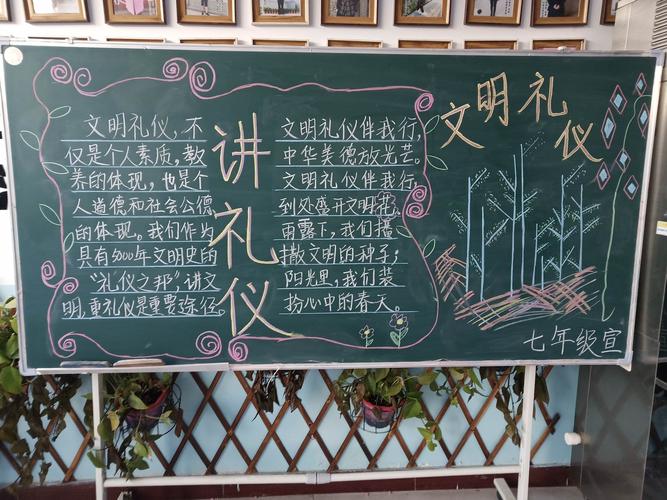 文明礼仪,不
仅是个人素质,教
养的体现,也是个
人道德和社会公德
的体现。我们作为
具有5000年文明史的
"礼仪之邦",讲文
明,重礼仪是重要途径。
讲礼仪
文明礼仪伴我行,
中华美德放光芒。
文明礼仪伴我行,
到处盛开文明花。
雨露下,我们播
撒文明的种子;
阳光里,我们装
扮心中的春天。
文明礼仪
七年级宣